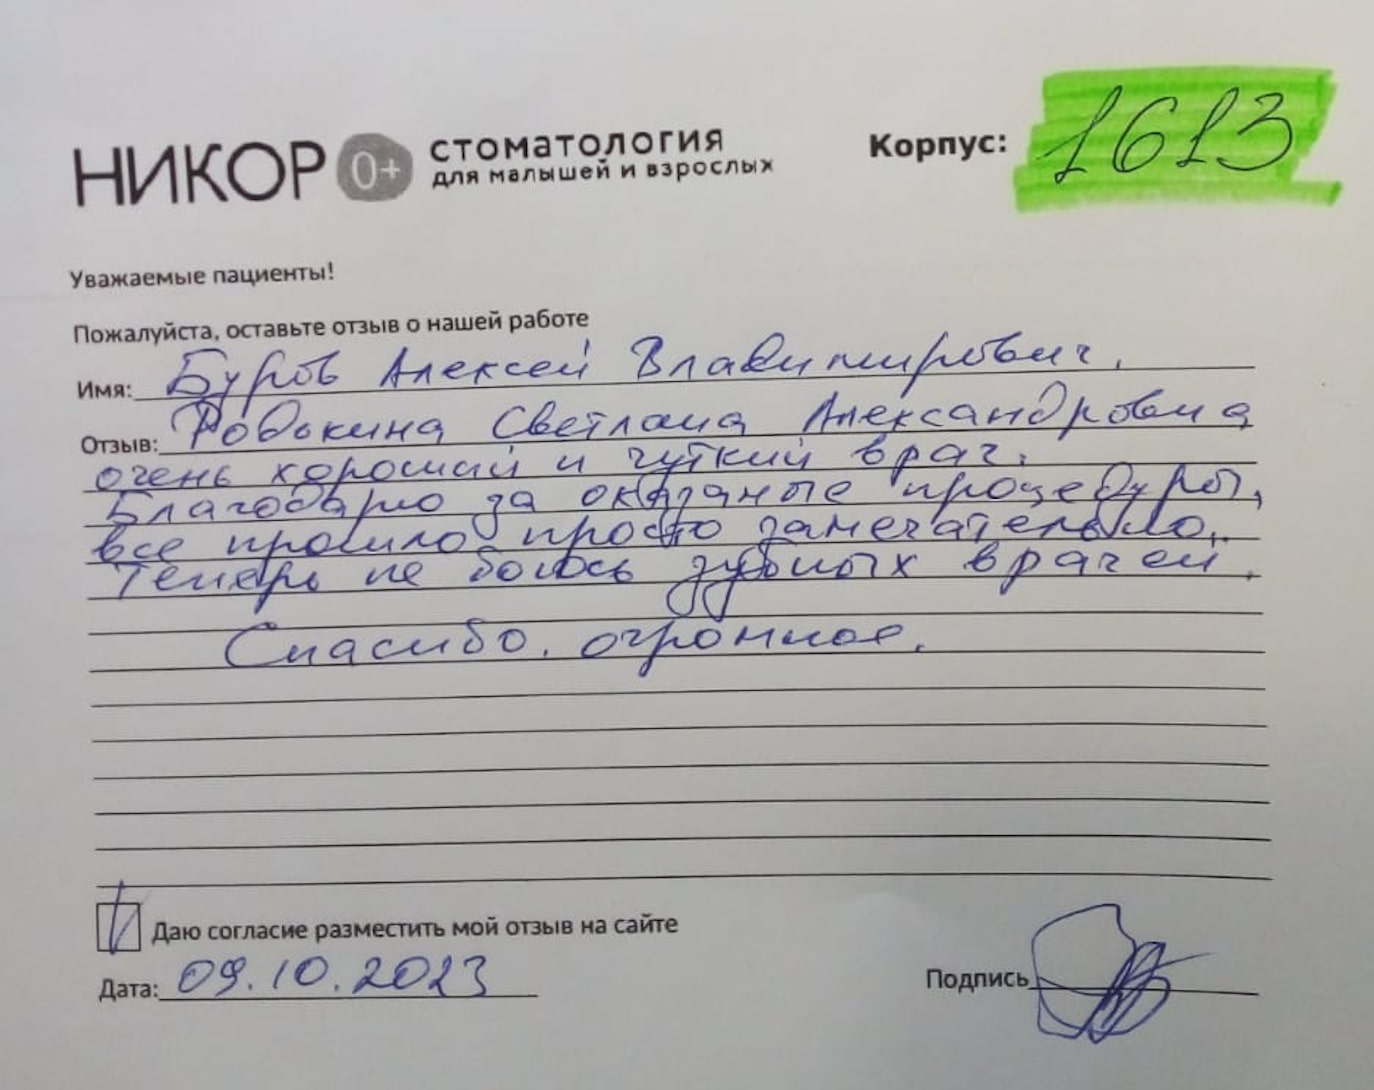 НИКОР 0+ СТОМАТОЛОГИЯ
ДЛЯ МАЛЫШЕЙ И ВЗРОСЛЫХ
Корпус: 1613
Уважаемые пациенты!
Пожалуйста, оставьте отзыв о нашей работе
Имя: Буров Алексей Владимирович.
Отзыв: Светлана Александровна
очень хороший и чуткий врач.
Благодарю за оказаные процедуры,
все прошло просто замечательно.
Теперь не боюсь зубных врачей.
Спасибо. огромное.
Даю согласие разместить мой отзыв на сайте
Дата: 09.10.2023
Подпись